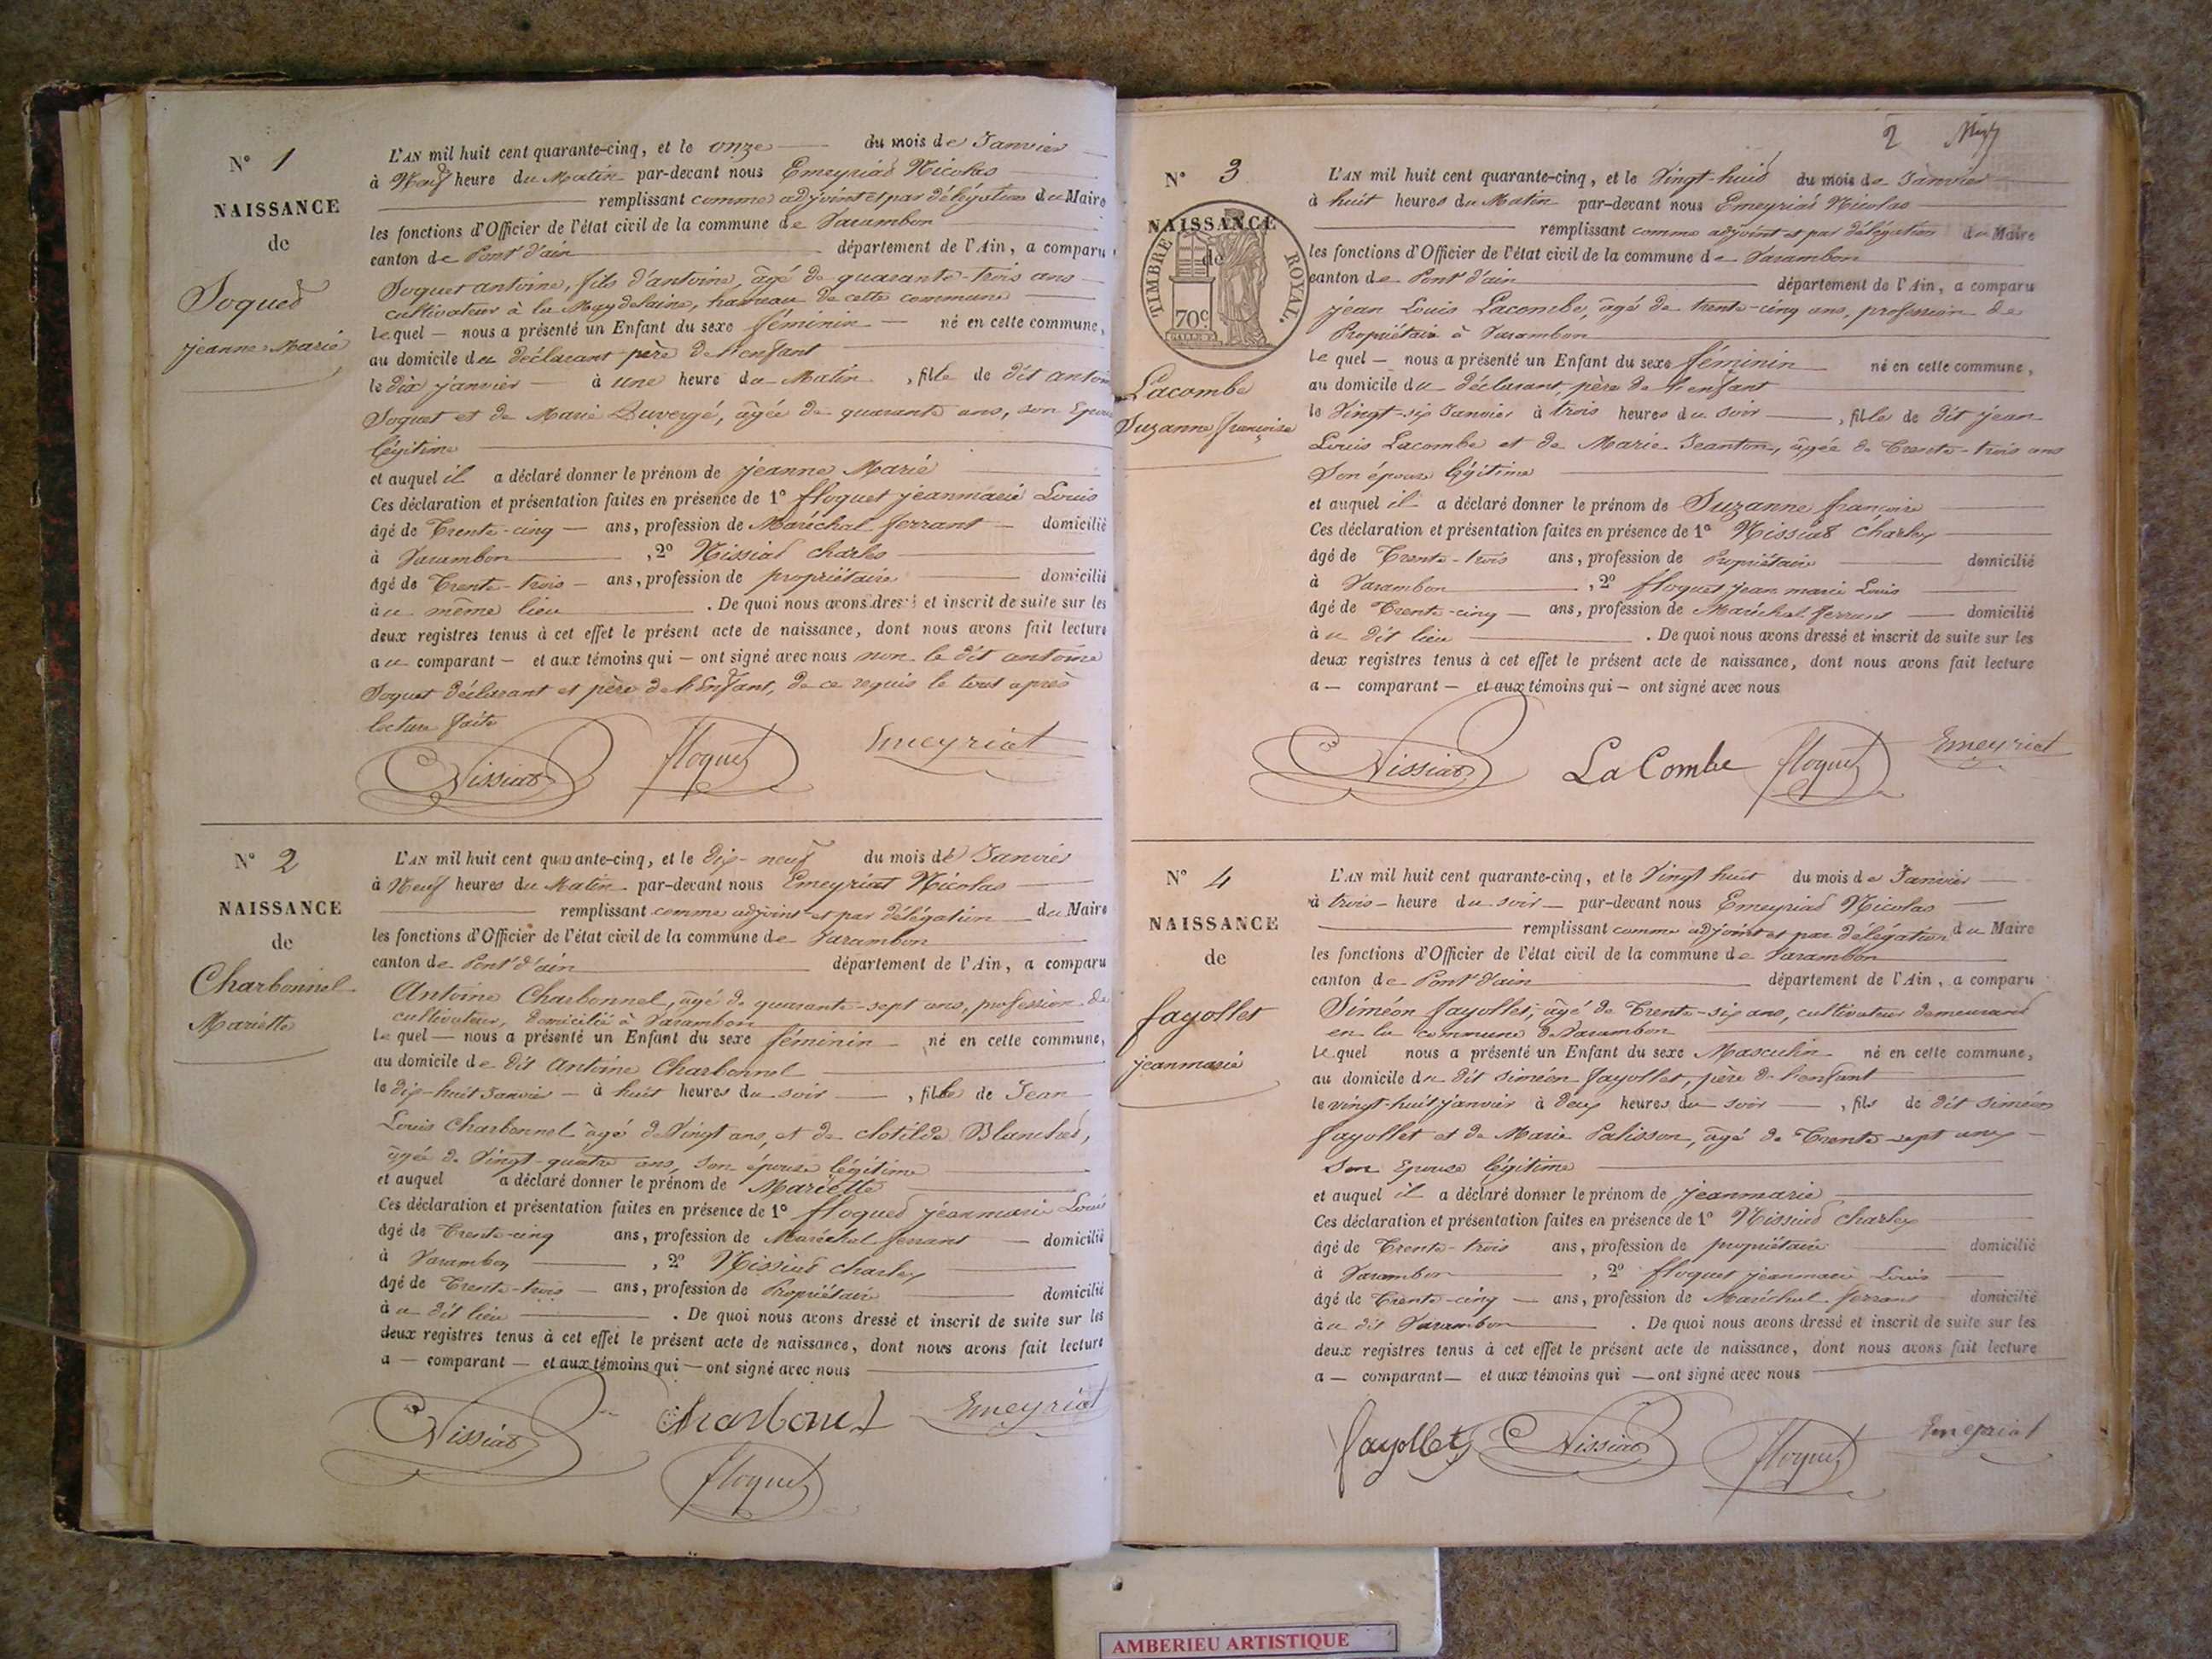 N° 1
NAISSANCE
de
Soquet
jeanne Marie
L'AN mil huit cent quarante-cinq, et le onze du mois de Janvier
à Neuf heure du Matin par-devant nous Emeyriat Nicolas
remplissant comme adjoint et par délégation du Maire
les fonctions d'Officier de l'état civil de la commune de Varambon
canton de Pont d'ain département de l'Ain, a comparu
Soquet antoine, fils d'antoine, âgé de quarante-trois ans
cultivateur à la hameau de cette commune
lequel — nous a présenté un Enfant du sexe féminin — né en cette commune,
au domicile du déclarant père de l'enfant
le dix janvier — à une heure du Matin, fille de dit antoine
Soquet et de Marie Duvergé, âgée de quarante ans, son Epouse
légitime
et auquel il a déclaré donner le prénom de jeanne Marie
Ces déclaration et présentation faites en présence de 1° floquet jeanmarie Louis
âgé de Trente-cinq — ans, profession de Maréchal ferrant — domicilié
à Varambon, 2° Nissiat charles
âgé de Trente-trois — ans, profession de propriétaire domicilié
au même lieu. De quoi nous avons dressé et inscrit de suite sur les
deux registres tenus à cet effet le présent acte de naissance, dont nous avons fait lecture
au comparant — et aux témoins qui — ont signé avec nous non le dit antoine
Soquet déclarant et père de l'Enfant, de ce requis le tout après
lecture faite
Nissiat floquet Emeyriat
N° 2
NAISSANCE
de
Charbonnel
Mariette
L'AN mil huit cent quarante-cinq, et le dix-neuf du mois de Janvier
à Neuf heures du Matin par-devant nous Emeyriat Nicolas
remplissant comme adjoint et par délégation du Maire
les fonctions d'Officier de l'état civil de la commune de Varambon
canton de Pont d'ain département de l'Ain, a comparu
Antoine Charbonnel, âgé de quarante-sept ans, profession de
cultivateur, domicilié à Varambon
lequel — nous a présenté un Enfant du sexe féminin né en cette commune,
au domicile de dit Antoine Charbonnel
le dix-huit Janvier — à huit heures du soir —, fille de Jean
Louis Charbonnel âgé de Vingt ans, et de clotilde Blanchet,
âgée de Vingt-quatre ans, son épouse légitime
et auquel a déclaré donner le prénom de Mariette
Ces déclaration et présentation faites en présence de 1° floquet jeanmarie Louis
âgé de Trente-cinq ans, profession de Maréchal ferrant — domicilié
à Varambon, 2° Nissiat charles
âgé de Trente-trois — ans, profession de Propriétaire domicilié
au dit lieu. De quoi nous avons dressé et inscrit de suite sur les
deux registres tenus à cet effet le présent acte de naissance, dont nous avons fait lecture
a — comparant — et aux témoins qui — ont signé avec nous
Nissiat Charbonel Emeyriat
floquet
2
N° 3
NAISSANCE
de
TIMBRE ROYAL.
70c
Lacombe
Suzanne françoise
L'AN mil huit cent quarante-cinq, et le Vingt-huit du mois de Janvier
à huit heures du Matin par-devant nous Emeyriat Nicolas
remplissant comme adjoint et par délégation du Maire
les fonctions d'Officier de l'état civil de la commune de Varambon
canton de Pont d'ain département de l'Ain, a comparu
jean Louis Lacombe, âgé de trente-cinq ans, profession de
Propriétaire à Varambon
lequel — nous a présenté un Enfant du sexe féminin né en cette commune,
au domicile du déclarant, père de l'enfant
le Vingt-six Janvier à trois heures du soir, fille de dit jean
Louis Lacombe et de Marie Jeanton, âgée de Trente-trois ans
Son épouse légitime
et auquel il a déclaré donner le prénom de Suzanne françoise
Ces déclaration et présentation faites en présence de 1° Nissiat Charles
âgé de Trente-trois ans, profession de Propriétaire domicilié
à Varambon, 2° floquet jean marie Louis
âgé de Trente-cinq — ans, profession de Maréchal ferrant — domicilié
au dit lieu. De quoi nous avons dressé et inscrit de suite sur les
deux registres tenus à cet effet le présent acte de naissance, dont nous avons fait lecture
a — comparant — et aux témoins qui — ont signé avec nous
Nissiat LaCombe floquet Emeyriat
N° 4
NAISSANCE
de
fayollet
jeanmarie
L'AN mil huit cent quarante-cinq, et le Vingt huit du mois de Janvier
à trois — heure du soir — par-devant nous Emeyriat Nicolas
remplissant comme adjoint et par délégation du Maire
les fonctions d'Officier de l'état civil de la commune de Varambon
canton de Pont d'ain département de l'Ain, a comparu
Siméon fayollet, âgé de Trente-six ans, cultivateur demeurant
en la commune de Varambon
lequel nous a présenté un Enfant du sexe Masculin né en cette commune,
au domicile du dit siméon fayollet, père de l'enfant
le vingt-huit janvier à deux heures du soir, fils de dit siméon
fayollet et de Marie Palisson, âgé de Trente-sept ans
son Epouse légitime
et auquel il a déclaré donner le prénom de jeanmarie
Ces déclaration et présentation faites en présence de 1° Nissiat Charles
âgé de Trente-trois ans, profession de propriétaire domicilié
à Varambon, 2° floquet jeanmarie Louis
âgé de Trente-cinq — ans, profession de Maréchal ferrant domicilié
au dit Varambon. De quoi nous avons dressé et inscrit de suite sur les
deux registres tenus à cet effet le présent acte de naissance, dont nous avons fait lecture
a — comparant — et aux témoins qui — ont signé avec nous
fayollet Nissiat floquet Emeyriat
AMBERIEU ARTISTIQUE